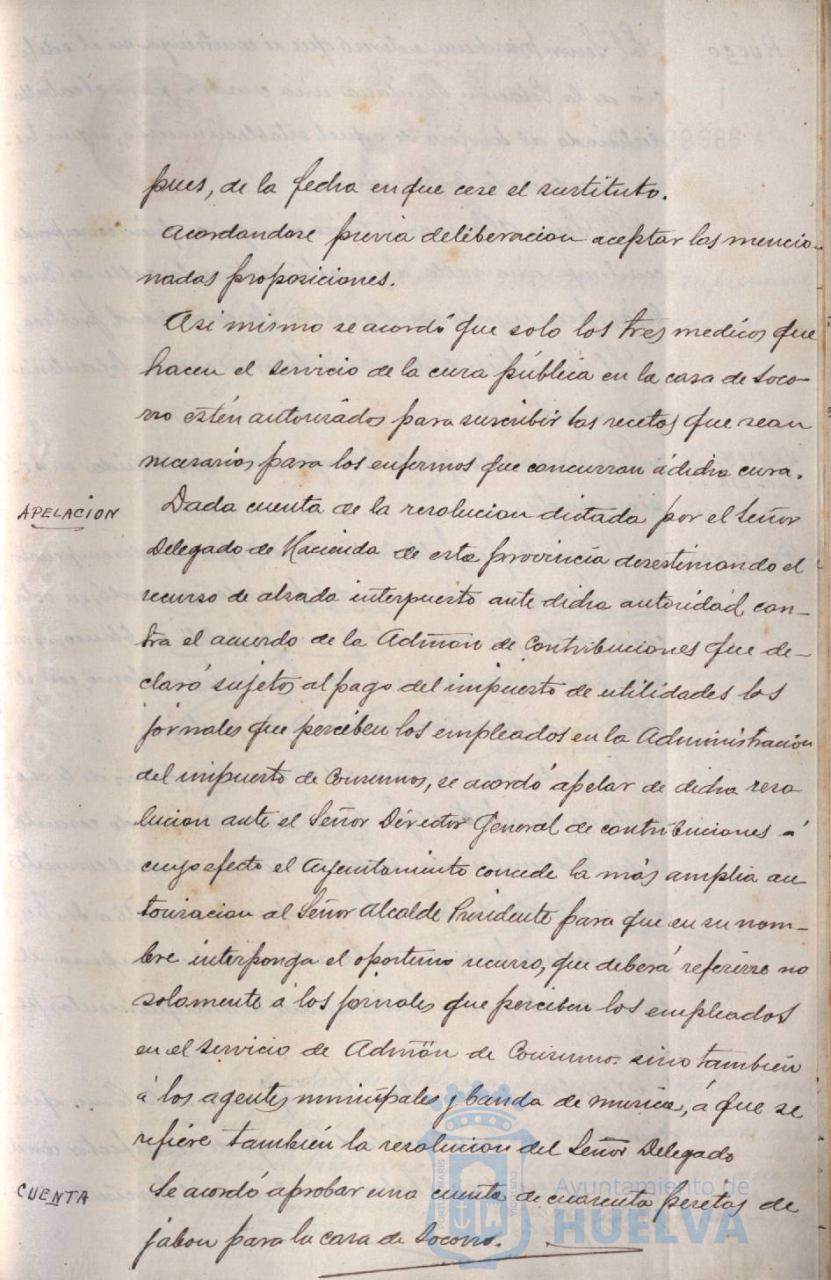 pues, de la fecha en que cese el sustituto.
Acordandose previa deliberacion aceptar las mencio-
nadas proposiciones.
Asi mismo se acordó que solo los tres medicos que
hacen el servicio de la cura pública en la casa de Soco-
rro estén autorizados para suscribir las recetas que sean
necesarias para los enfermos que concurran á dicha cura.
APELACION
Dada cuenta de la resolucion dictada por el Señor
Delegado de Hacienda de esta provincia desestimando el
recurso de alzada interpuesto ante dicha autoridad con-
tra el acuerdo de la Admon de Contribuciones que de-
claró sujetos al pago del impuesto de utilidades los
jornales que perciben los empleados en la Administracion
del impuesto de Consumos, se acordó apelar de dicha reso
lucion ante el Señor Director General de contribuciones á
cuyo efecto el Ayuntamiento concede la más amplia au
torizacion al Señor Alcalde Presidente para que en su nom-
bre interponga el oportuno recurso, que deberá referirse no
solamente á los jornales que perciben los empleados
en el servicio de Admón de Consumos sino también
á los agentes municipales y banda de musica, á que se
refiere también la resolucion del Señor Delegado
CUENTA
Se acordó aprobar una cuenta de cuarenta pesetas de
jabon para la casa de Socorro.
Ayuntamiento de
HUELVA